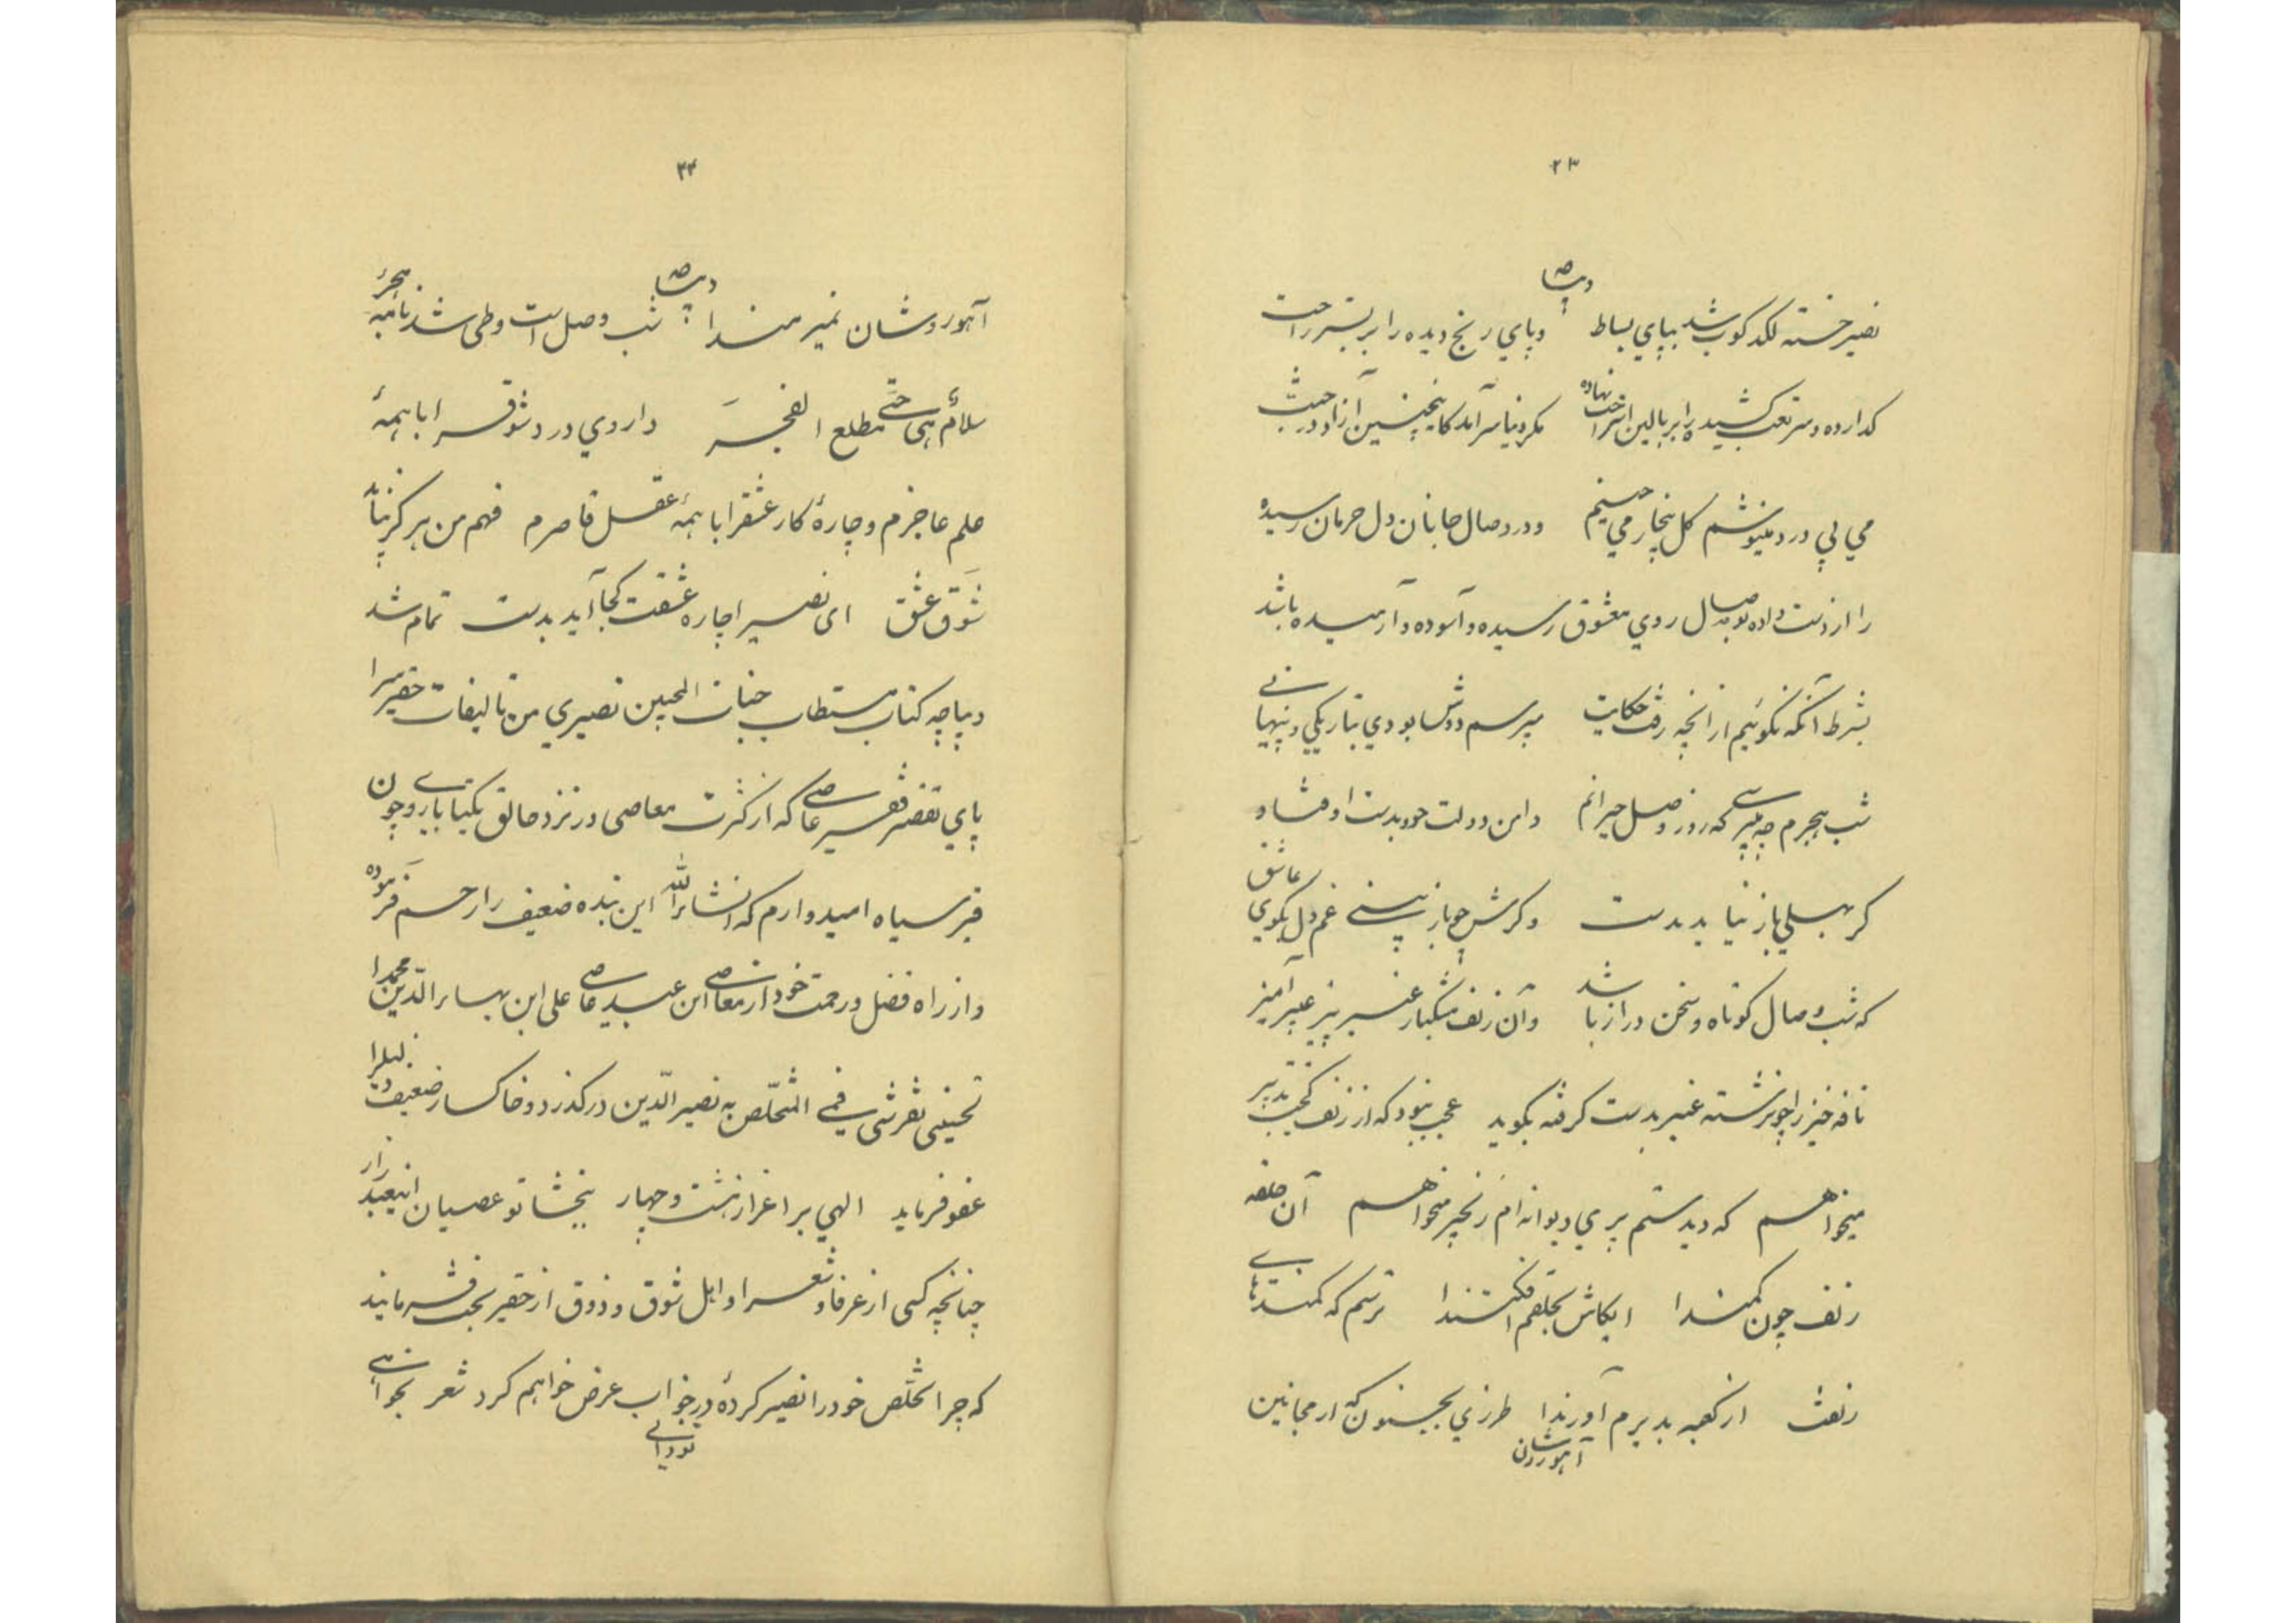 ۲۳
دیباچه
نصیر خسته لگدکوب شد بپای بساط و پای رنج دیده را بر بستر راحت
گذارده و سر تعب کشیده را بر بالین استراحت نهاده مگر دنیا سر آمد کاینچنین آزاد در جنت
می بی درد مینوشم گل بیخار می چینم و در وصال جانان دل حرمان رسیده
را از دست داده بوصال روی معشوق رسیده و آسوده و آرمیده باشد
بشرط آنکه نگوئیم از آنچه رفت حکایت بپرسم دوش با بودی بتاریکی و تنهائی
شب هجرم چه میپرسی که روز وصل حیرانم دامن دولت چو بدست اوفتاد و
گر بهلی باز نیاید بدست و گرش چو باز ببینی غم دل بگوی عاشق
که شب وصال کوتاه و سخن دراز باشد و آن زلف مشکبار عنبر بیز عبیر آمیز
نافه خیز را چو سرشته عنبر بدست گرفته بگوید عجب نبود که از زلف کجت تدبیر
میخواهم که دیدستم پری دیوانه ام زنجیر میخواهم آن حلقه
زلف چون کمندا ایکاش بحلقم افکنندا ترسم که کمندهای
زلفت از کعبه بدیرم آورندا طرزی بجنون که از مجانین
آهوروشان
۲۴
دیباچه
آهوروشان نمیرمندا شب وصل است و طی شد نامه هجر
سلام هی حتی مطلع الفجر داروی درد شوق را با همه
علم عاجزم و چاره کار عشق را با همه عقل قاصرم فهم من هرگز نیابد
شوق عشق ای نصیرا چاره عشقت کجا آید بدست تمام شد
دیباچه کتاب مستطاب جنات المحبین نصیری من تالیفات حقیر سرا
پای تقصیر فقیر عاصی که از کثرت معاصی در نزد خالق یکتا باروی چون
قیر سیاه امیدوارم که انشاءالله این بنده ضعیف را رحم فرموده
و از راه فضل و رحمت خود از معاصی این عبد عاصی علی ابن بهاءالدین محمد ا
لحسینی تفرشی فمی المتخلص به نصیرالدین درگذرد و خاکسار ضعیف و ذلیل را
عفو فرماید الهی بر اعزاز هشت و چهار ببخشا تو عصیان اینعبد زار
چنانچه کسی از عرفا و شعرا و اهل شوق و ذوق از حقیر بحث فرمایند
که چرا تخلص خود را نصیر کرده در جواب عرض خواهم کرد شعر بخوانمی
تودانی